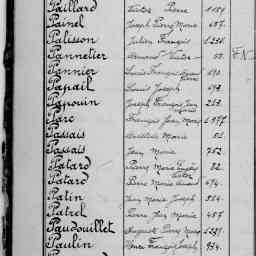 Paillard Victor Pierre 1184.
Painel Joseph Pierre Marie 487.
Palisson Julien François 1231.
Pannetier Armand Victor 50. F.N
Pannier Louis François 490.
Papail Louis Joseph 493.
Papouin Joseph François Jean Marie 213.
Parc François Jean Marie 1977.
Passais Mathilde Marie 51.
Passais Jean Marie 752.
Patard Pierre Marie Victor 32.
Patard Pierre Marie Armand 474.
Patin Jean Marie Joseph 554.
Patrel Pierre Jean Marie 457
Paudouillet Auguste Pierre Marie
Paulin François Joseph 934.